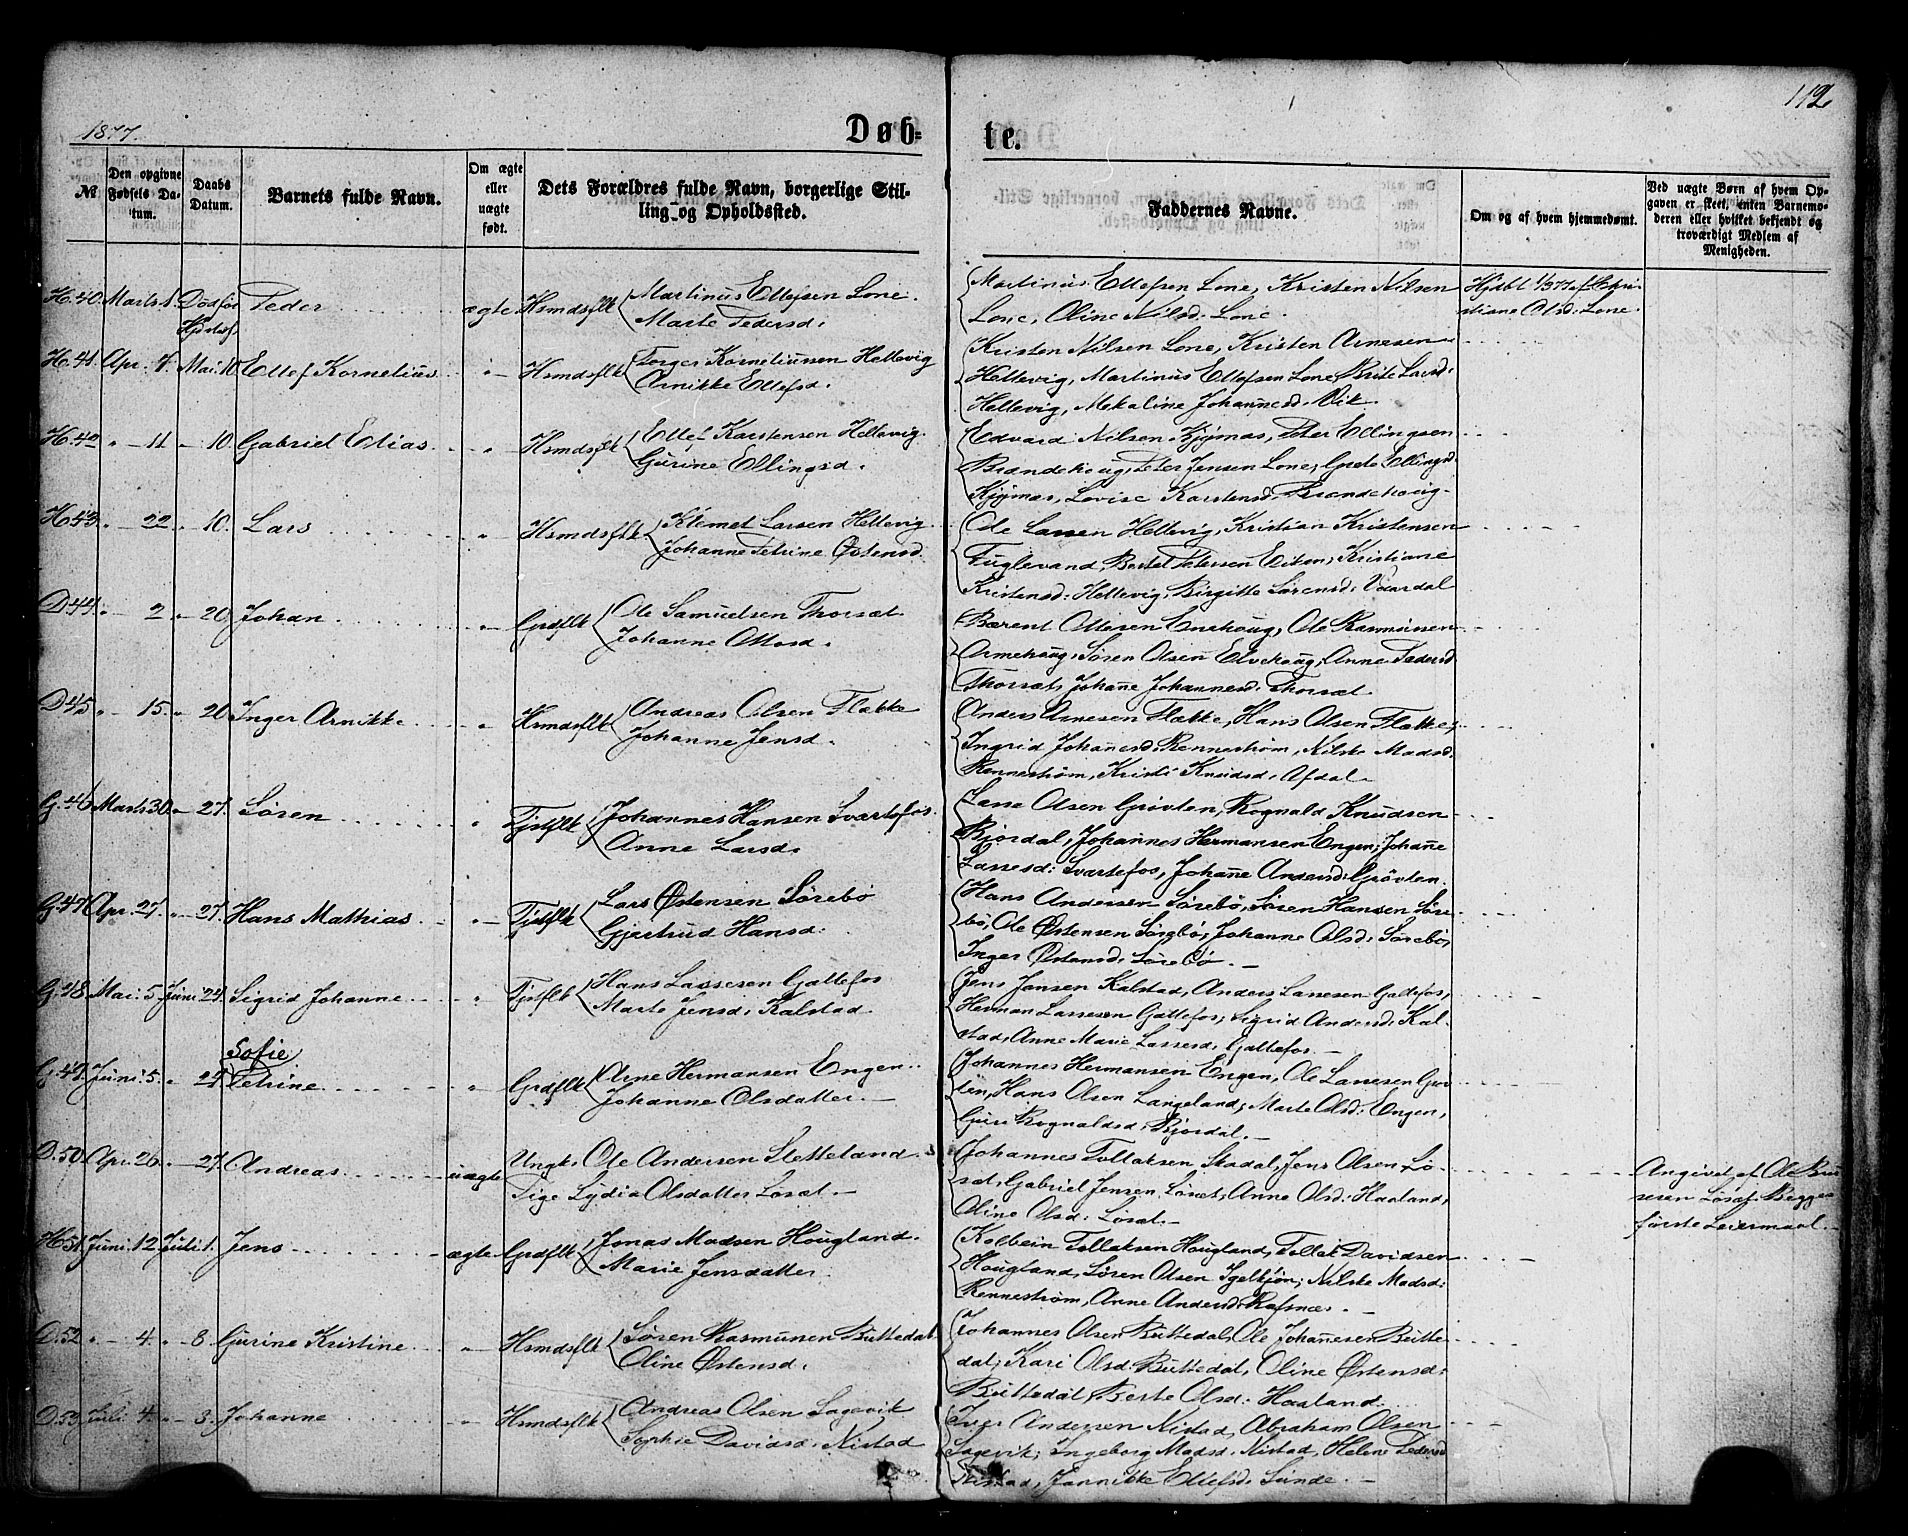 1877.
Døb-
te.
112
№
Den opgivne Fødsels Da- tum.
Daabs Datum.
Barnets fulde Navn.
Om ægte eller uægte født.
Dets Forældres fulde Navn, borgerlige Stil- ling og Opholdssted.
Faddernes Navne.
Om og af hvem hjemmedømt.
Ved uægte Børn af hvem Op- gaven er skeet, enten Barnemo- deren eller hvilket bekjendt og troværdigt Medlem af Menigheden.
H. 40. Marts 1. Peder ægte Hsmdsflk Martinus Ellefsen Lone.
Marte Pedersd.
Martinus Ellefsen Lone, Kristen Nilsen
Lone, Oline Nilsd. Lone.
stiane Olsd. Lone.
H. 41. Apr. 7. Mai. 10. Ellef Kornelius " Hsmdsflk Torger Korneliussen Hellevig
Arnikke Ellefsd.
Kristen Nilsen Lone, Kristen Arnesen
Hellevig, Martinus Ellefsen Lone, Brite Larsd.
Hellevig, Mekaline Johannesd. Vik.
H. 42 " 11 " 10. Gabriel Elias " Hsmdsflk Ellef Karstensen Hellevig.
Gurine Ellingsd.
Edvard Nilsen Kjymas, Peter Ellingsen
Brandehoug, Peter Jensen Lone, Ellingsd.
Kjymas, Lovise Karstensd. Brandehoug.
H. 43. " 22 " 10. Lars " Hsmdsflk. Klemet Larsen Hellevig.
Johanne Petrine Østensd.
Ole Larsen Hellevig, Kristian Kristensen
Fuglevand, Bertel Petersen Eiken, Kristiane
Kristensd. Hellevig, Birgitte Sørensd. Vaardal
D. 44. " 2 " 20. Johan " Grdflk Ole Samuelsen Thorsæt.
Johanne Ottosd.
Bærent Ottesen Enehoug, Ole Rasmussen
Armehoug, Søren Olsen Elvehoug, Anne Pedersd.
Thorsæt, Johanne Johannesd. Thorsæt
D. 45. " 15. " 20 Inger Arnikke " Hsmdsflk Andreas Olsen Flække
Johanne Jensd.
Anders Arnesen Flække, Hans Olsen Flække,
Ingrid Johannesd. Rennestrøm, Nilske Madsd.
Rennestrøm, Kristi Knudsd. Afdal.
G. 46 Marts 30. " 27. Søren " Tjstflk Johannes Hansen Svartefos
Anne Larsd.
Lasse Olsen Grøvlen, Rognald Knudsen
Bjordal, Johannes Hermansen Engen, Johanne
Lassesd. Svartefos, Johanne Andersd. Grøvlen.
G. 47. Apr. 27. " 27. Hans Mathias " Tjstflk Lars Østensen Sørebø
Gjertrud Hansd.
Hans Andersen Sørebø, Søren Hansen Søre-
bø, Ole Østensen Sørebø, Johanne Olsd. Sørebø,
Inger Østensd. Sørebø.
G. 48. Mai. 5. Juni 24. Sigrid Johanne " Tjstflk Hans Lassesen Gjallefos
Marte Jensd. Kalstad.
Jens Jansen Kalstad, Anders Lassesen Gallefos,
Herman Lassesen Gallefos, Sigrid Andersd. Kal-
stad, Anne Marie Lassesd. Gallefos.
Sofie
G. 49. Juni. 5. " 24. Petrine " Grdflk Arne Hermansen Engen.
Johanne Olsdatter.
Johannes Hermansen Engen, Ole Lassesen Grøv-
len, Hans Olsen Langeland, Marte Olsd. Engen,
Guri Rognaldsd. Bjordal.
D. 50. Apr. 26. " 27. Andreas uægte Ungk. Ole Andersen Sletteland.
Pige Lydia Olsdatter Løsæt.
Johannes Tollaksen Skadal, Jens Olsen Lø-
sæt, Gabriel Jensen Løsæt, Anne Olsd. Haaland,
Oline Olsd. Løsæt.
Angivet af Ole
Løsæt. Begges
første Leiermaal.
H. 51. Juni. 12. Juli 1. Jens ægte Grdflk Jonas Madsen Hougland.
Marie Jensdatter.
Kolbein Tollaksen Hougland, Tollak Davidsen
Hougland, Søren Olsen Igelkjøn, Nilske Madsd.
Rennestrøm, Anne Andersd. Rafsnæs.
D. 52. " 4. " 8. Gurine Kristine " Hsmdsflk Søren Rasmussen Buttedal.
Oline Østensd.
Johannes Olsen Buttedal, Ole Johannesen Butte-
dal, Kari Olsd. Buttedal, Oline Østensd.
Buttedal, Berte Olsd. Haaland.
D. 53. Juli. 4. " 8. Johanne " Hsmdsflk Andreas Olsen Sagevik
Sophie Davidsd. Nistad
Iver Andersen Nistad, Abraham Olsen
Sagevik, Ingeborg Madsd. Nistad, Helene Pedersd.
Nistad, Jannikke Ellefsd. Sunde.